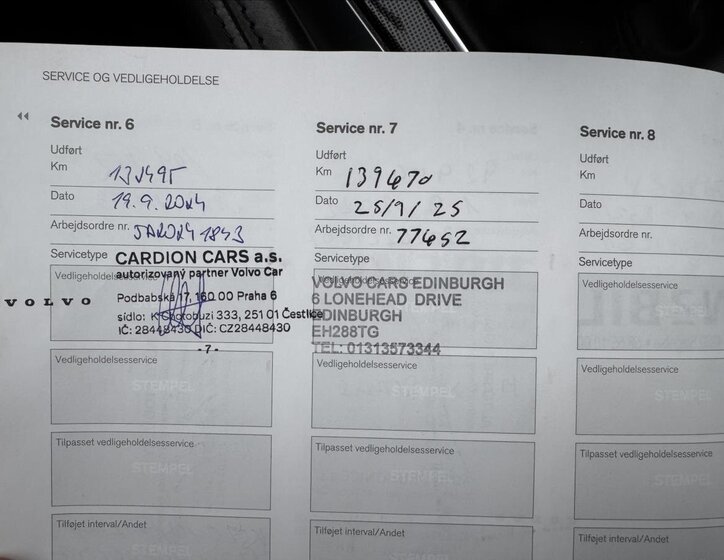 SERVICE OG VEDLIGEHOLDELSE
Service nr. 6
Udført
Km
Dato 19.9.2014
Arbejdsordre nr.
Servicetype
CARDION CARS a.s.
autorizovaný partner Volvo Car
Podbabská 17, 160 00 Praha 6
sídlo: 333, 251 01 Čestlice
IČ: 28448430 DIČ: CZ28448430
- 7 -
VOLVO
Vedligeholdelsesservice
Vedligeholdelsesservice
STEMPEL
Tilpasset vedligeholdelsesservice
STEMPEL
Tilføjet interval/Andet
STEMPEL
Service nr. 7
Udført
Km 139670
Dato 25/9/25
Arbejdsordre nr. 77652
Servicetype
VOLVO CARS EDINBURGH
6 LONEHEAD DRIVE
EDINBURGH
EH288TG
TEL: 01313573344
Vedligeholdelsesservice
STEMPEL
Tilpasset vedligeholdelsesservice
STEMPEL
Tilføjet interval/Andet
Service nr. 8
Udført
Km
Dato
Arbejdsordre nr.
Servicetype
Vedligeholdelsesservice
STEMPEL
Vedligeholdelsesservice
STEMPEL
Tilpasset vedligeholdelsesservice
STEMPEL
Tilføjet interval/Andet